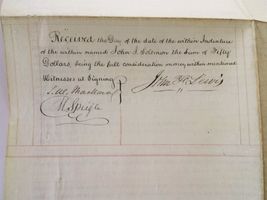 Received the Day of the date of the within Indenture
of the within named John J. Solomon the Sum of Fifty
Dollars, being the full consideration money within mentioned
Witnesses at Signing
John Lewis